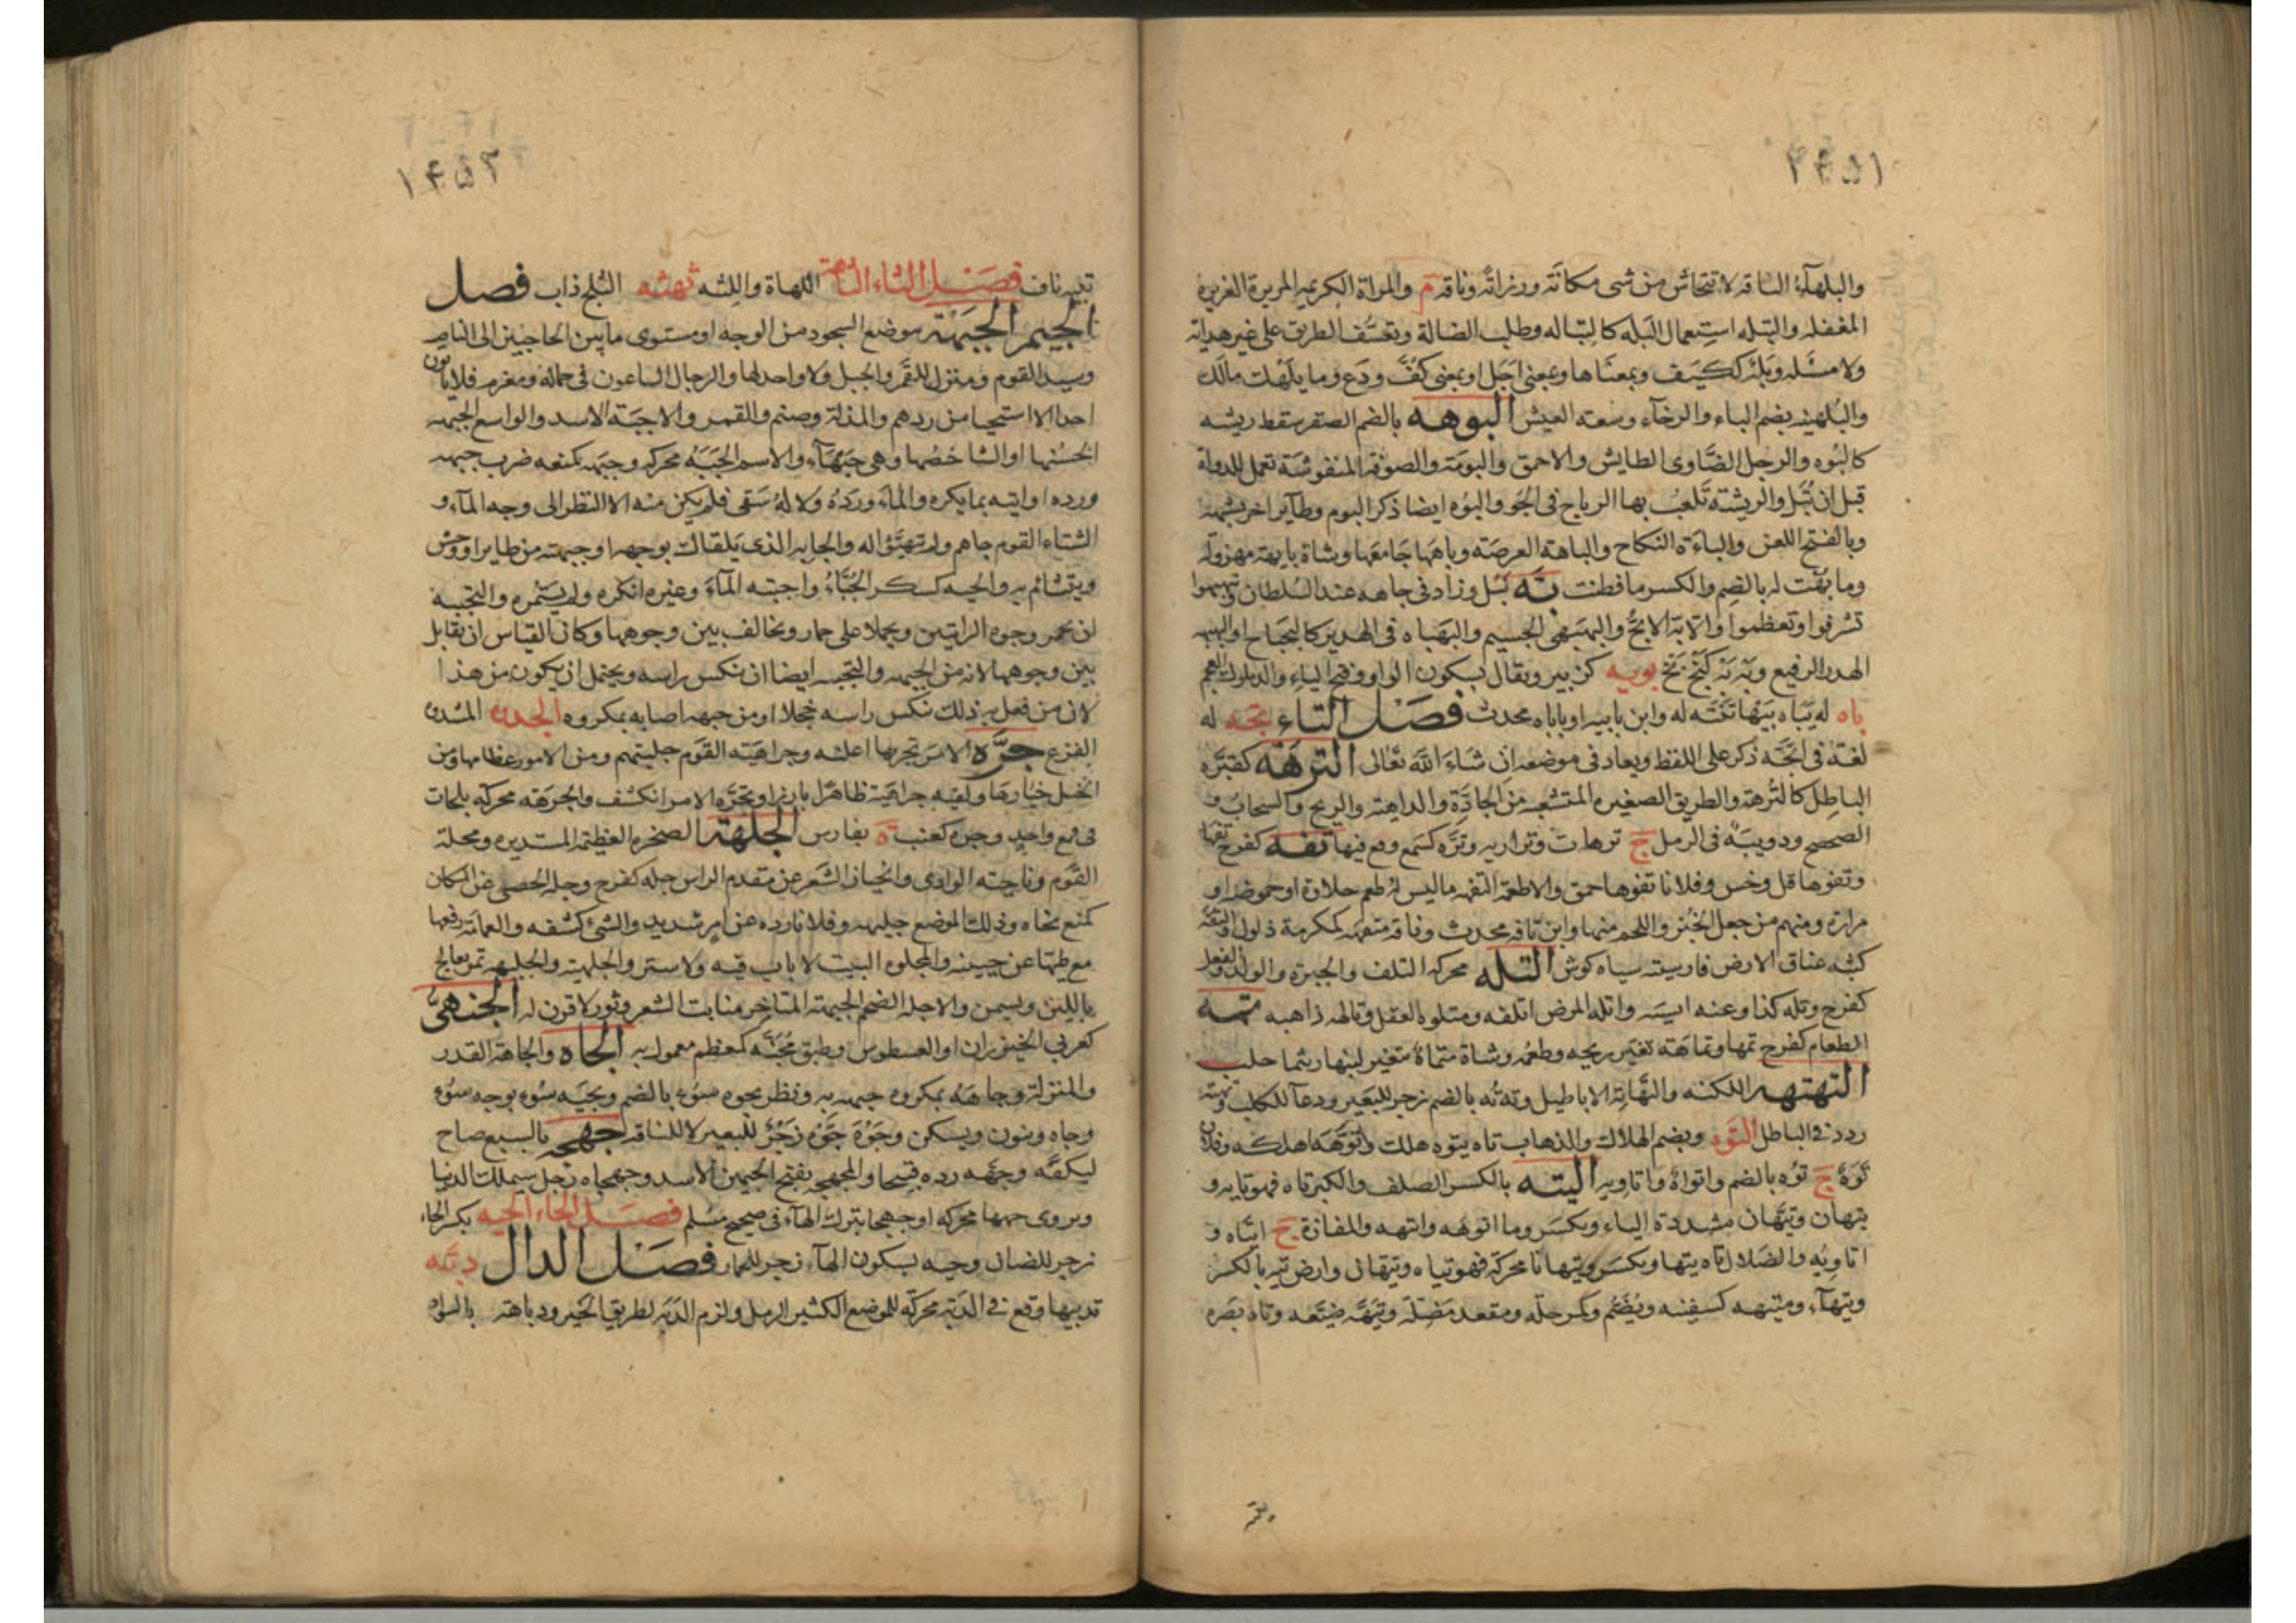 ۱۴۵۱
والبلهاء الناقه لا تنحاش من شى مكانة ورزانة وناقه م والمراة الكريمه المريرة الغريرة
المغفله والتبله استعمال البله كالتباله وطلب الضالة وتعسف الطريق على غير هداية
ولا مسئله وبله ككيف وبمعناها وبمعنى اجل او بمعنى كف ودع وما بلهك مالك
والبلهنيه بضم الباء والرخاء وسعة العيش البوهه بالضم الصقر سقط ريشه
كالبوه والرجل الضاوى الطايش والاحمق والبومة والصوفة المنفوشة تعمل للدواة
قبل ان تبل والريشة تلعب بها الرياح فى الجو والبوه ايضا ذكر البوم وطاير اخر يشبهه
وبالفتح اللعن والباءة النكاح والباهة العرصة وباهها جامعها وشاة بايهة مهزولة
وما بهت له بالضم والكسر ما فطنت به نبل وزاد فى جاهه عند السلطان وتبهبهوا
تشرفوا وتعظموا والابه الابح والبهبهى الجسيم والبهباه فى الهدير كالبخباخ والبهبه
الهدر الرفيع وبه به كبخ بخ بويه كزبير ويقال بسكون الواو وفتح الياء والديلوك العجم
باه له يباه بيها تنبه له وابن بابيه او باباه محدث فصل التاء تجه له
لغة فى اتجه ذكر على اللفظ ويعاد فى موضعه ان شاء الله تعالى الترهة كقبره
الباطل كالترهة والطريق الصغيره المتشعبه من الجادة والداهية والريح والسحاب و
الصحصح ودويبة فى الرمل ج ترهات وتراريه وتره كسمع وقع فيها تفه كفرح تفها
وتفوها قل وخس وفلانا تفوها حمق والاطعمة التفهه ما ليس له طعم حلاوة او حموضه او
مرارة ومنهم من جعل الخبز واللحم منها وابن تافه محدث وناقه متفهه كمكرمة ذلول والتفه
كثبه عناق الارض فارسيته سياه كوش التله محركة التلف والحيرة والوله والفعل
كفرح وتله كذا وعنه انسيه واتله المرض اتلفه ومتلوه العقل وتالهه ذاهبه تمه
الطعام كفرح تمها وتماهة تغير ريحه وطعمه وشاة متماه تتغير لبنها ريثما حلب
التهتهه اللكنه والتهاته الاباطيل وته ته بالضم زجر للبعير ودعاء للكلب وتهته
ردد فى الباطل التوه وبضم الهلاك والذهاب تاه يتوه هلك وتوهه اهلكه وفلان
توه ج توه بالضم واتواه واتاويه التيه بالكسر الصلف والكبر تاه فهو تايه و
تيهان وتيهان مشددة الياء وبكسر وما اتوهه واتيهه والمفازة ج اتياه و
اتاويه والضلال تاه تيها وبكسر وتيهانا محركة فهو تياه وتيهان وارض تيه بالكسر
وتيهاء ومتيهه كسفينه وبضم وكمرحلة ومقعد مضلة وتيهه ضيعه وتاه بصره
يتيه
۱۴۵۲
تيه تاف فصل الثاء الثاهة اللهاة واللثه ثهثه الثلج ذاب فصل
الجيم الجبهة موضع السجود من الوجه او مستوى ما بين الحاجبين الى الناصيه
وسيد القوم ومنزل للقمر والخيل ولا واحد لها والرجال الساعون فى حمالة ومغرم فلا ياتون
احدا الا استحيا من ردهم والمذلة وصنم والقمر والاجبه الاسد والواسع الجبهة
الحسنها او الشاخصها وهى جبهاء والاسم الجبه محركه وجبهه كمنعه ضرب جبهه
ورده او لقيه بما يكره والماء ورده ولا له سقى فلم يكن منه الا النظر الى وجه الماء و
الشتاء القوم جاهم ولم يتهيؤا له والجابه الذى يلقاك بوجهه او جبهته من طاير او وحش
ويتشائم به والجبه كسكر الجباء واجتبه الماء وغيره انكره ولم يستمره والتجبيه
ان يحمر وجوه الزانيين ويحملا على حمار ويخالف بين وجوهما وكان القياس ان يقابل
بين وجوهما لانه من الجبهه والتجبيه ايضا ان ينكس راسه ويحتمل ان يكون من هذا
لان من فعل به ذلك ينكس راسه خجلا او من جبهه اصابه بمكروه الجده المشده
الفزع جره الامر تجريها اعلنه وجراهية القوم جلبتهم ومن الامور عظامها ومن
الخيل خيارها ولقيه جراهية ظاهرا بارزا وتجره الامر انكشف والجرهة محركة بلحات
فى قمع واحد وجره كعنب ة بفارس الجلهة الصخره العظيمة المستديره ومحلة
القوم وناحية الوادى وانحياز الشعر عن مقدم الراس جله كفرح وجله الحصى عن المكان
كمنع نحاه وذلك الموضع جليهه وفلانا رده عن امر شديد والشئ كشفه والعمامة رفعها
مع طيها عن جبينه والمجلوه البيت لا باب فيه ولا ستر والجلهية والجليهه تمر يعالج
باللبن ويسمن والاجله الضخم الجبهة المتاخر منابت الشعر وثور لا قرن له الجنهى
كعرنى الخيزران او العسطوس وطبق مجنه كمعظم معمول به الجاه والجاهة القدر
والمنزلة وجاهه بمكروه جبهه به ونظر بجوه سوء بالضم وبجيه سوء بوجه سوء
وجاه وينون ويسكن وجوه جوه زجر للبعير لا للناقه جهجه بالسبع صاح
ليكفه وجهه رده قبيحا والمجهجه بفتح الجيمين الاسد وجهجاه رجل سيملك الدنيا
ويروى جهها محركه او جهجا بترك الهاء فى صحيح مسلم فصل الحاء الحيه بكسر الحاء
زجر للضان وحيه بسكون الهاء زجر للحمار فصل الدال دبه
تدبيها وقع فى الدبة محركة للموضع الكثير الرمل ولزم الدبة لطريق الخير ودباهة بالسواد